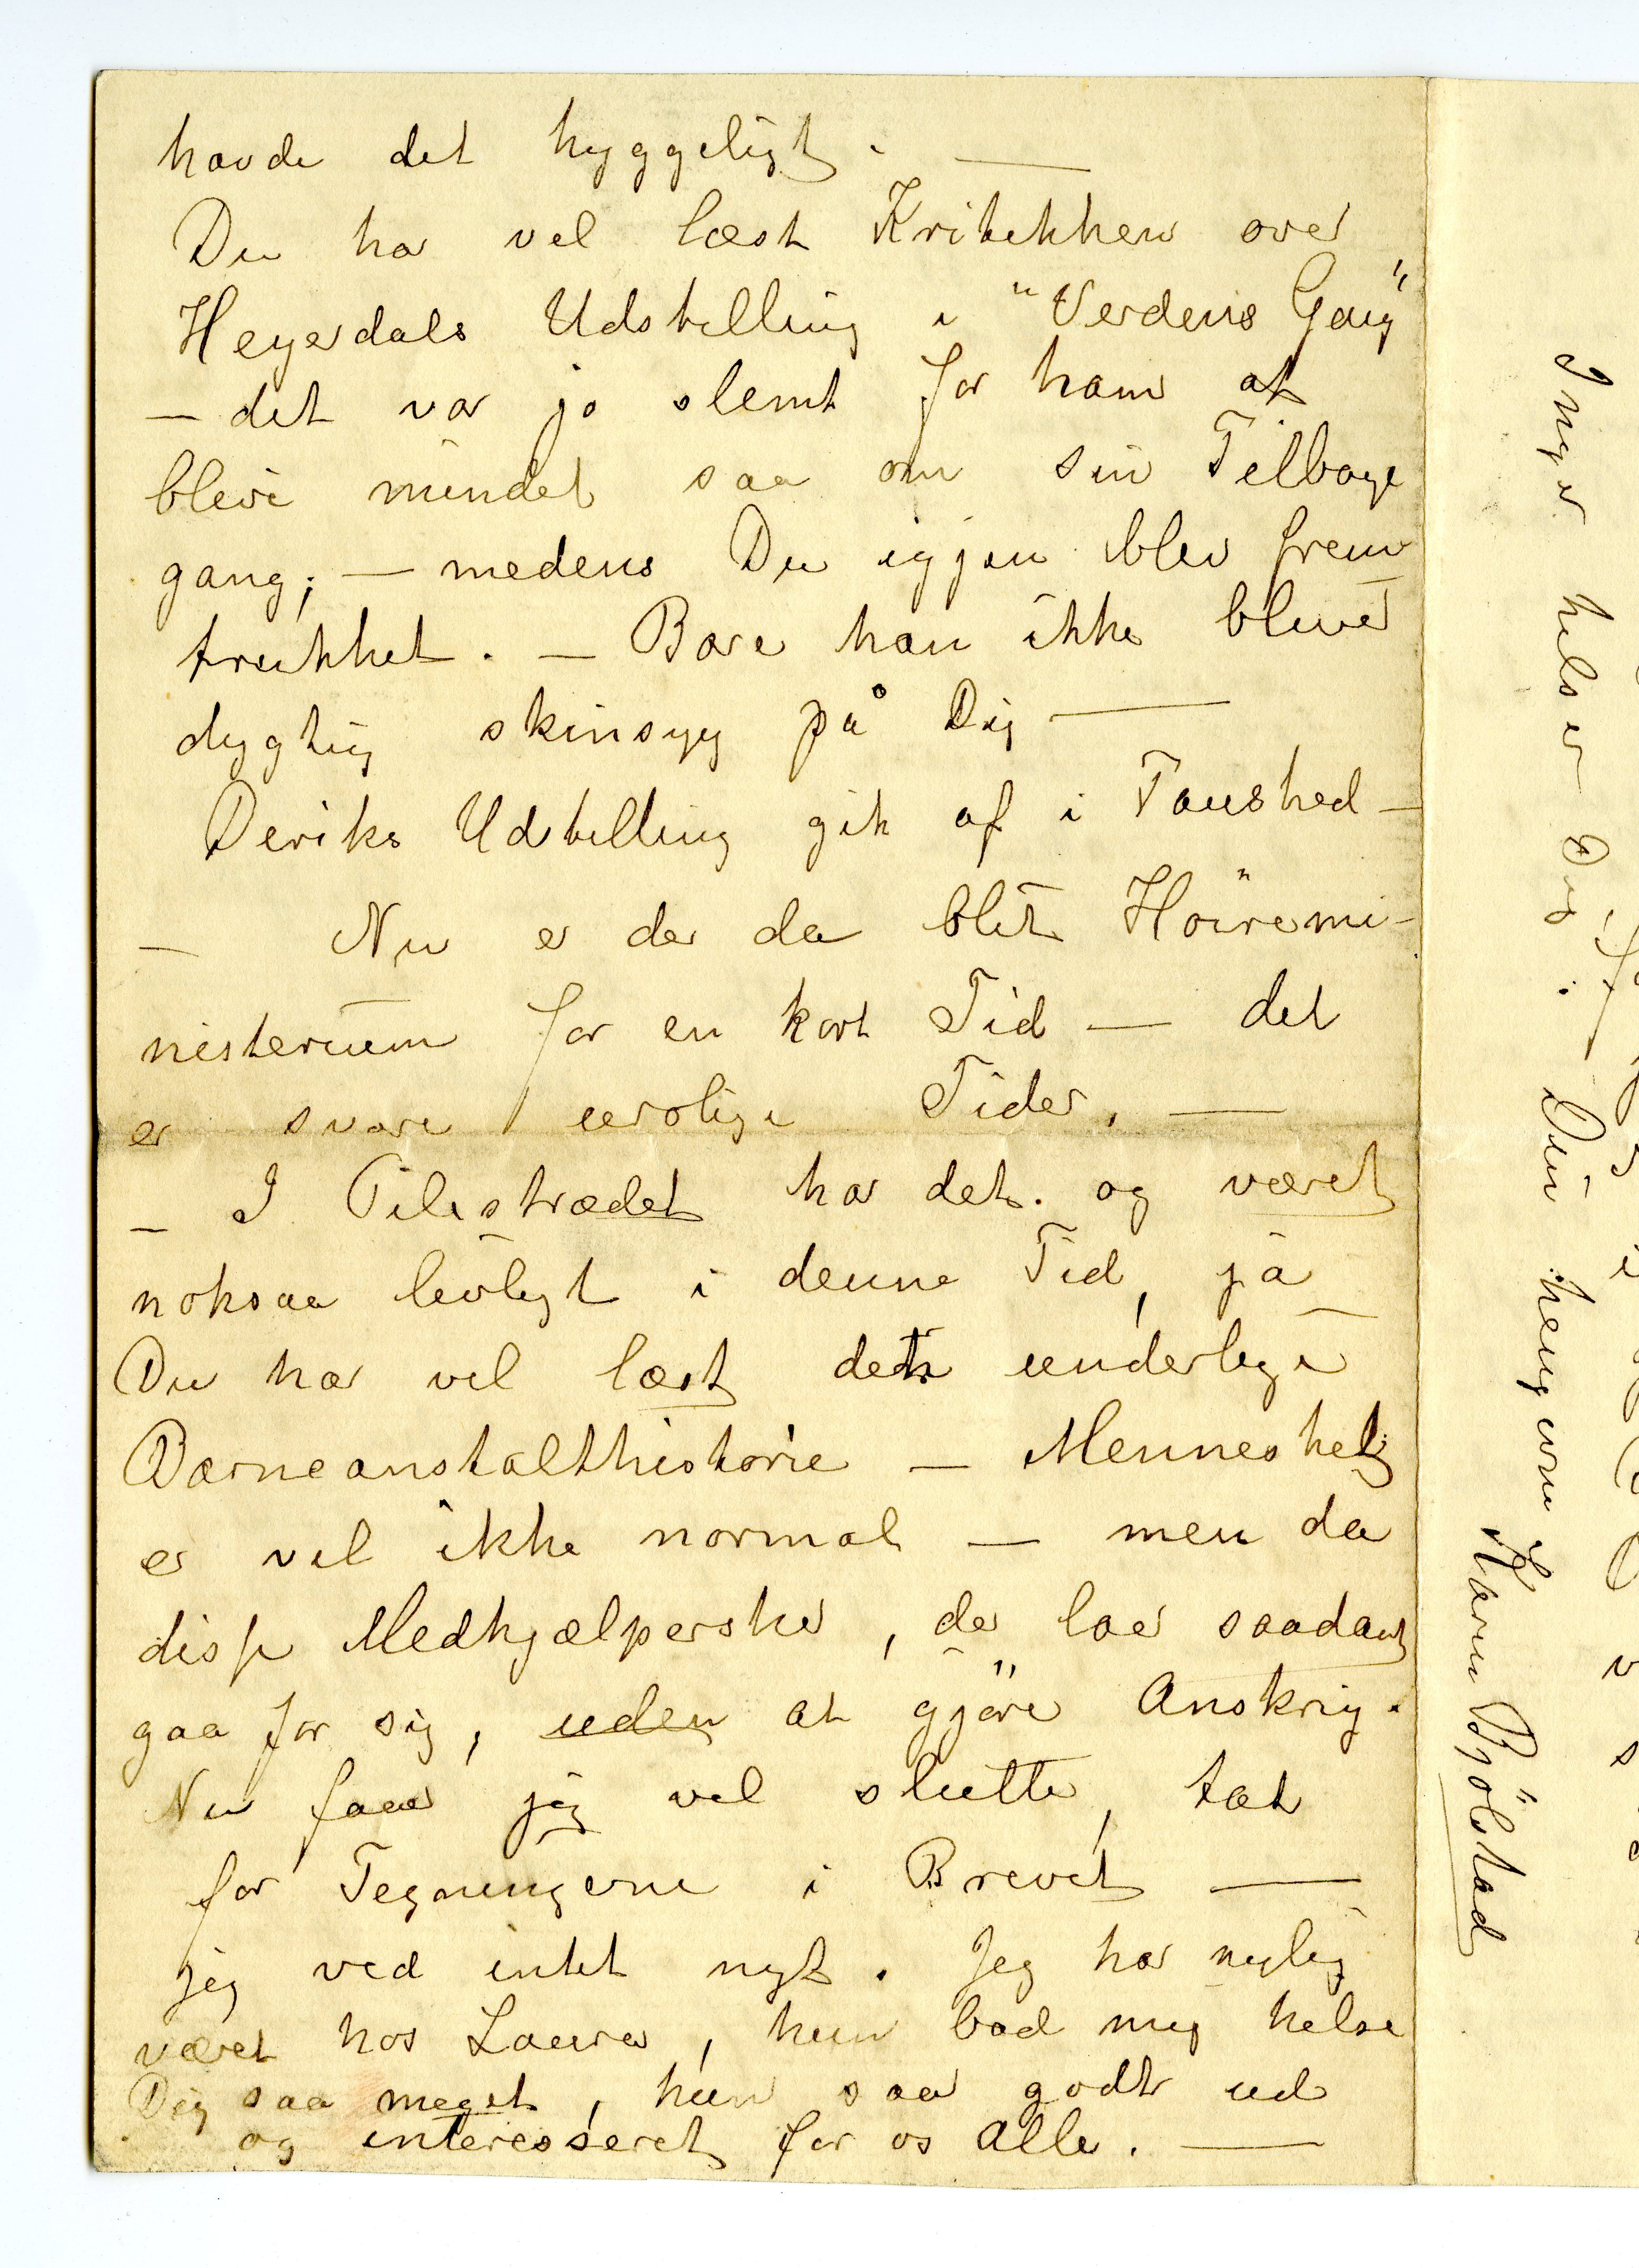 havde det hyggeligt. —
Du har vel læst Kritikken over
Heyerdals Udstilling i "Verdens Gang"
— det var jo slemt for ham at
bleve mindet saa om sin Tilbage
gang; — medens Du igjen blev frem
trukket. — Bare han ikke bliver
dygtig skinsyg på Dig —
Deriks Udstilling gik af i Taushed —
— Nu er der da blit Høiremi-
nisterium for en kort Tid — det
er svare urolige Tider. —
— I Pilestrædet har det og været
noksaa livligt i denne Tid, ja
Du har vel læst den underlige
Barneanstalthistorie — Mennesket
er vel ikke normal — men da
disse Medhjælpersker, der lod saadant
gaa for sig, uden at gjöre Anskrig.
Nu faar jeg vel slutte, tak
for Tegningerne i Brevet —
jeg ved intet nyt. Jeg har nylig
været hos Laura, hun bad mig helse
Dig saa meget, hun saa godt ud
og interesseret for os alle. —
Inger helser Dig. Din hengivne
Karen Bjölstad